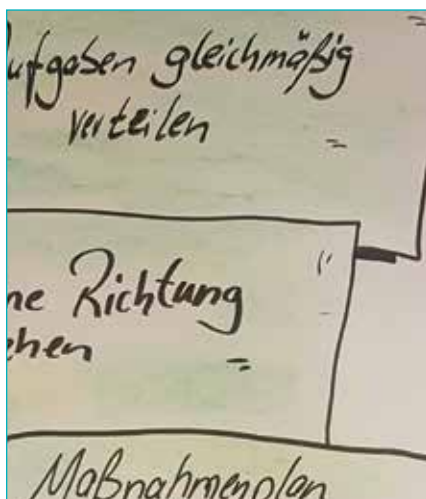 ufgaben gleichmäßig
verteilen
ne Richtung
ehen
Maßnahmenplan